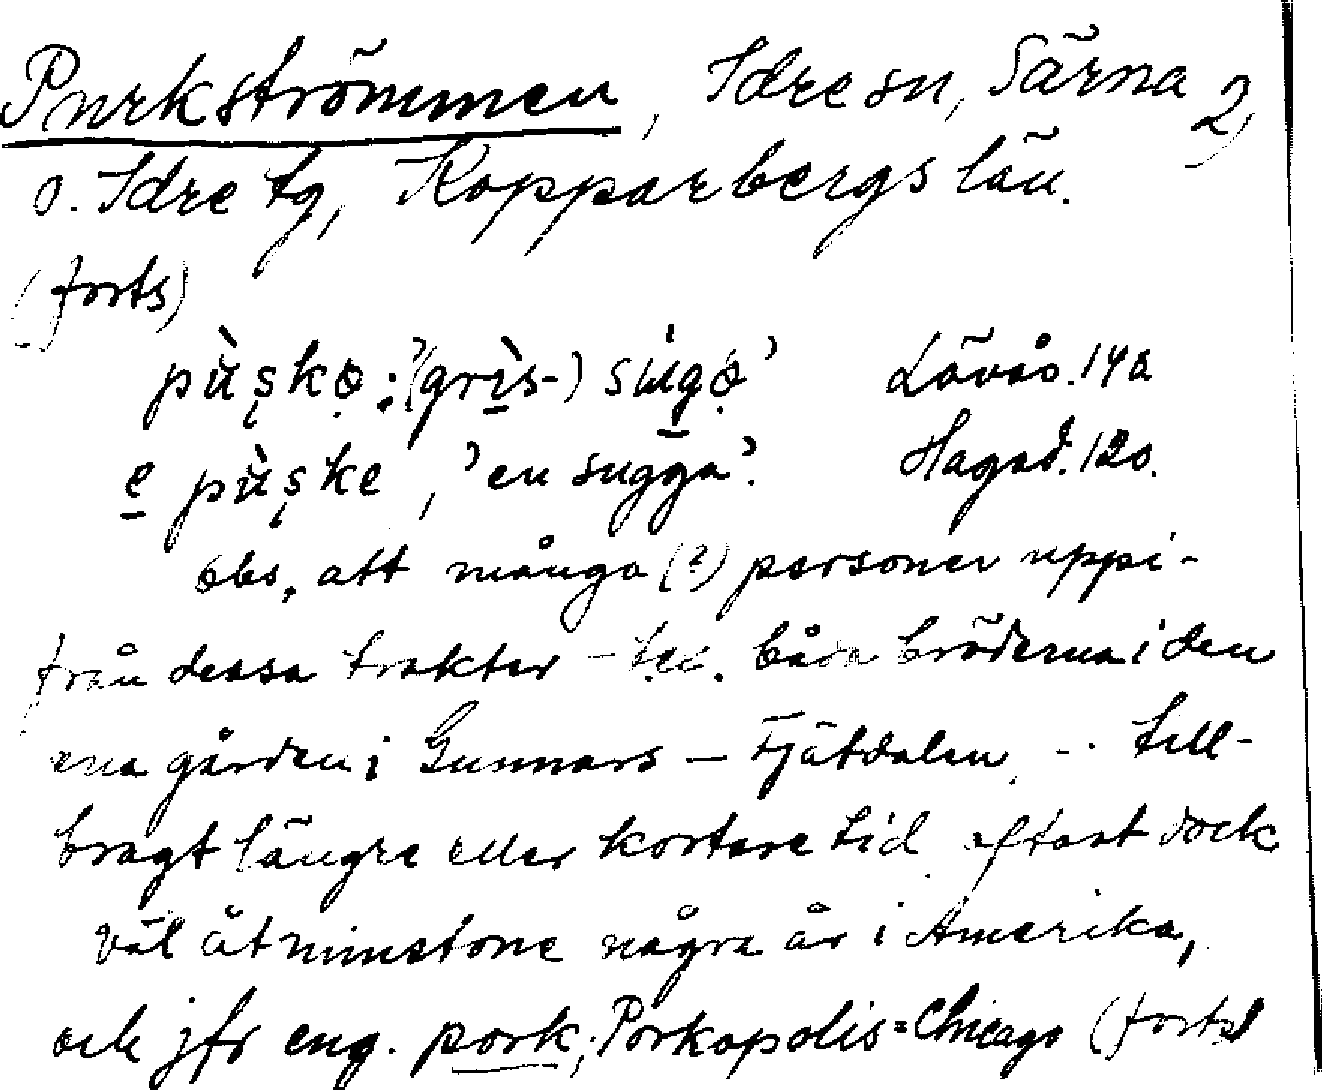 Purkströmmen, Idre sn, Särna 2)
o. Idre tg, Kopparbergs län.
(forts)
pùşkọ: '(grìs-) sùgọ' Lövås. 14a
e pùşke, 'en sugga'. Hagad. 120.
Obs. att många (?) personer uppi-
från dessa trakter – t.ex. båda bröderna i den
ena gården i Gunnars – Fjätdalen – till-
bragt längre eller kortare tid oftast dock
väl åtminstone några år i Amerika,
och jfr eng. pork; Porkopolis = Chicago (forts)